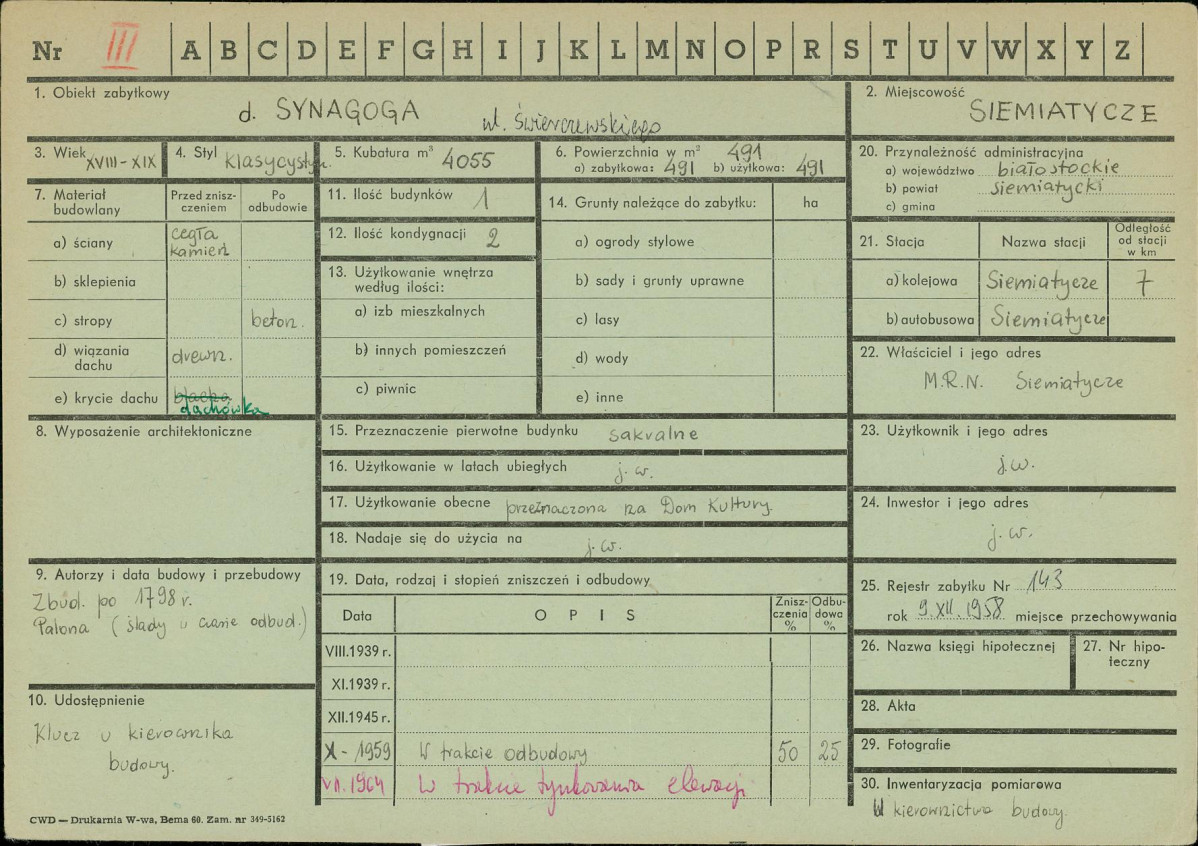 Nr III A B C D E F G H I J K L M N O P R S T U V W X Y Z
1. Obiekt zabytkowy
d. SYNAGOGA ul. Świerczewskiego
2. Miejscowość
SIEMIATYCZE
3. Wiek XVIII-XIX
4. Styl klasycystyn.
5. Kubatura m³ 4055
6. Powierzchnia w m² 491
a) zabytkowa: 491 b) użytkowa: 491
20. Przynależność administracyjna
a) województwo białostockie
b) powiat siemiatycki
c) gmina
7. Materiał budowlany
Przed znisz-
czeniem
Po
odbudowie
a) ściany cegła
kamień
b) sklepienia
c) stropy beton.
d) wiązania
dachu drewn.
e) krycie dachu blacha
dachówka
11. Ilość budynków 1
12. Ilość kondygnacji 2
13. Użytkowanie wnętrza
według ilości:
a) izb mieszkalnych
b) innych pomieszczeń
c) piwnic
14. Grunty należące do zabytku: ha
a) ogrody stylowe
b) sady i grunty uprawne
c) lasy
d) wody
e) inne
21. Stacja Nazwa stacji
Odległość
od stacji
w km
a) kolejowa Siemiatycze 7
b) autobusowa Siemiatycze
22. Właściciel i jego adres
M.R.N. Siemiatycze
8. Wyposażenie architektoniczne
15. Przeznaczenie pierwotne budynku sakralne
16. Użytkowanie w latach ubiegłych j.w.
17. Użytkowanie obecne przeznaczona na Dom Kultury
18. Nadaje się do użycia na j.w.
23. Użytkownik i jego adres
j.w.
24. Inwestor i jego adres
j.w.
9. Autorzy i data budowy i przebudowy
Zbud. po 1798 r.
Palona (ślady w czasie odbud.)
19. Data, rodzaj i stopień zniszczeń i odbudowy
Data OPIS
Znisz-
czenia
%
Odbu-
dowa
%
VIII.1939 r.
XI.1939 r.
XII.1945 r.
X-1959 W trakcie odbudowy 50 25
VII.1964 W trakcie tynkowania elewacji
25. Rejestr zabytku Nr 143
rok 9.XII.1958 miejsce przechowywania
26. Nazwa księgi hipotecznej
27. Nr hipo-
teczny
28. Akta
29. Fotografie
30. Inwentaryzacja pomiarowa
W kierownictwie budowy.
10. Udostępnienie
Klucz u kierownika
budowy.
CWD — Drukarnia W-wa, Bema 60. Zam. nr 349-5162